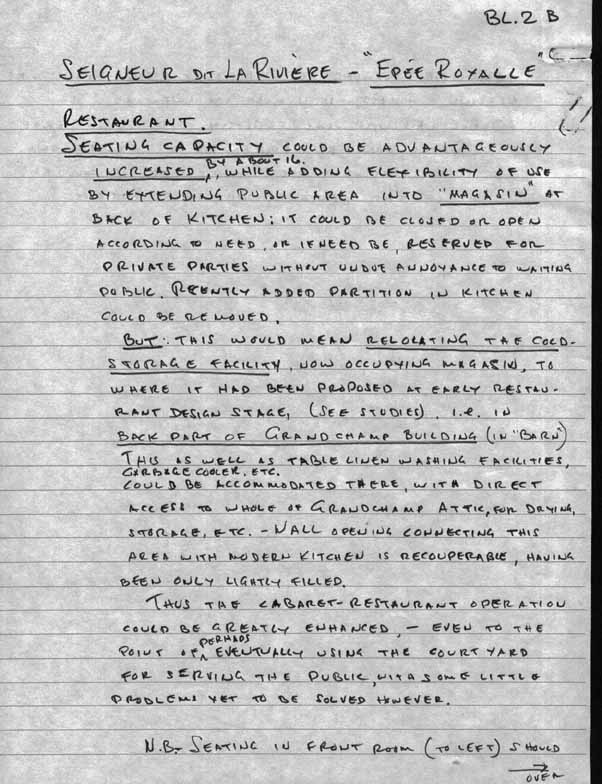 BL.2 B
SEIGNEUR DIT LA RIVIÈRE - "EPÉE ROYALLE"
RESTAURANT.
SEATING CAPACITY COULD BE ADVANTAGEOUSLY
BY ABOUT 16.
INCREASED, WHILE ADDING FLEXIBILITY OF USE
BY EXTENDING PUBLIC AREA INTO "MAGASIN" AT
BACK OF KITCHEN: IT COULD BE CLOSED OR OPEN
ACCORDING TO NEED, OR IF NEED BE, RESERVED FOR
PRIVATE PARTIES WITHOUT UNDUE ANNOYANCE TO WAITING
PUBLIC. RECENTLY ADDED PARTITION IN KITCHEN
COULD BE REMOVED.
BUT: THIS WOULD MEAN RELOCATING THE COLD-
STORAGE FACILITY, NOW OCCUPYING MAGASIN, TO
WHERE IT HAD BEEN PROPOSED AT EARLY RESTAU-
RANT DESIGN STAGE, (SEE STUDIES), I.E. IN
BACK PART OF GRANDCHAMP BUILDING (IN "BARN")
THIS AS WELL AS TABLE LINEN WASHING FACILITIES,
GARBAGE COOLER, ETC.
COULD BE ACCOMMODATED THERE, WITH DIRECT
ACCESS TO WHOLE OF GRANDCHAMP ATTIC, FOR DRYING,
STORAGE, ETC. - WALL OPENING CONNECTING THIS
AREA WITH MODERN KITCHEN IS RECOUPERABLE, HAVING
BEEN ONLY LIGHTLY FILLED.
THUS THE CABARET-RESTAURANT OPERATION
COULD BE GREATLY ENHANCED, - EVEN TO THE
PERHAPS
POINT OF EVENTUALLY USING THE COURTYARD
FOR SERVING THE PUBLIC, WITH SOME LITTLE
PROBLEMS YET TO BE SOLVED HOWEVER.
N.B. - SEATING IN FRONT ROOM (TO LEFT) SHOULD
OVER